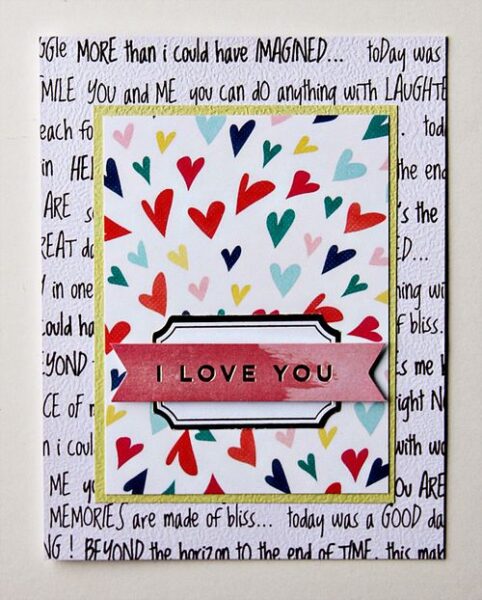 GGle MORE than i could have IMAGINED... toDay was
MILE YOU and ME you can DO anything with LAUGHTE
each fo tod
in HE the end
ARE s 's the
REAT d D...
Y in one ning wi
ould ha f bliss.
EYOND s me
I LOVE YOU
CE of ight N
n i coul with wo
ME y ou ARE
MEMORIES are made of bliss... today was a GOOD da
NG! BEYOND the horizon to the end of TIME. this mak